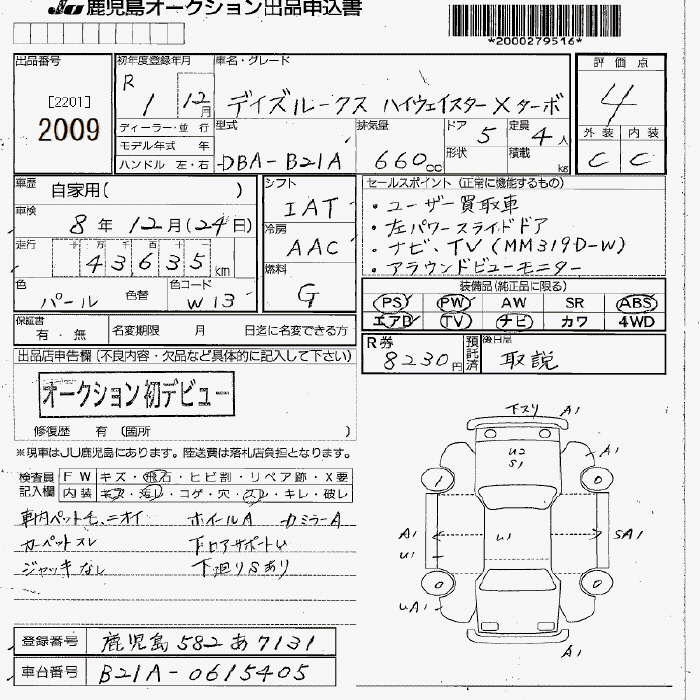 JU 鹿児島オークション出品申込書
*2000279516*
出品番号
[2201]
2009
初年度登録年月
R 1 12月
車名・グレード
デイズルークス ハイウェイスターXターボ
評価点
4
外装 内装
C C
ディーラー・並行
モデル年式 年
ハンドル 左・右
型式
DBA-B21A
排気量
660cc
ドア 5
形状
定員 4人
積載 kg
車歴
自家用( )
車検
8年 12月(24日)
走行
十 万 千 百 十 一
43635km
色
パール
色替
色コード
W13
シフト
IAT
冷房
AAC
燃料
G
セールスポイント (正常に機能するもの)
・ユーザー買取車
・左パワースライドドア
・ナビ、TV(MM319D-W)
・アラウンドビューモニター
装備品(純正品に限る)
PS PW AW SR ABS
エアB TV ナビ カワ 4WD
保証書
有・無
名変期限 月 日迄に名変できる方
R券
8230円
預託済
後日品
取説
出品店申告欄(不良内容・欠品など具体的に記入して下さい)
オークション初デビュー
修復歴 有 (箇所 )
※現車はJU鹿児島にあります。陸送費は落札店負担となります。
検査員記入欄
FW キズ・飛石・ヒビ割・リペア跡・X要
内装 キズ・汚レ・コゲ・穴・スレ・キレ・破レ
車内ペット毛、ニオイ ホイールA カミラーA
カーペットスレ 下ロアサポートU
ジャッキなし 下廻りSあり
下スリ A1
U2
S1
A1
1
0
A1
U1
U1
SA1
0
0
UA1
A1
登録番号 鹿児島 582 あ 7131
車台番号 B21A-0615405